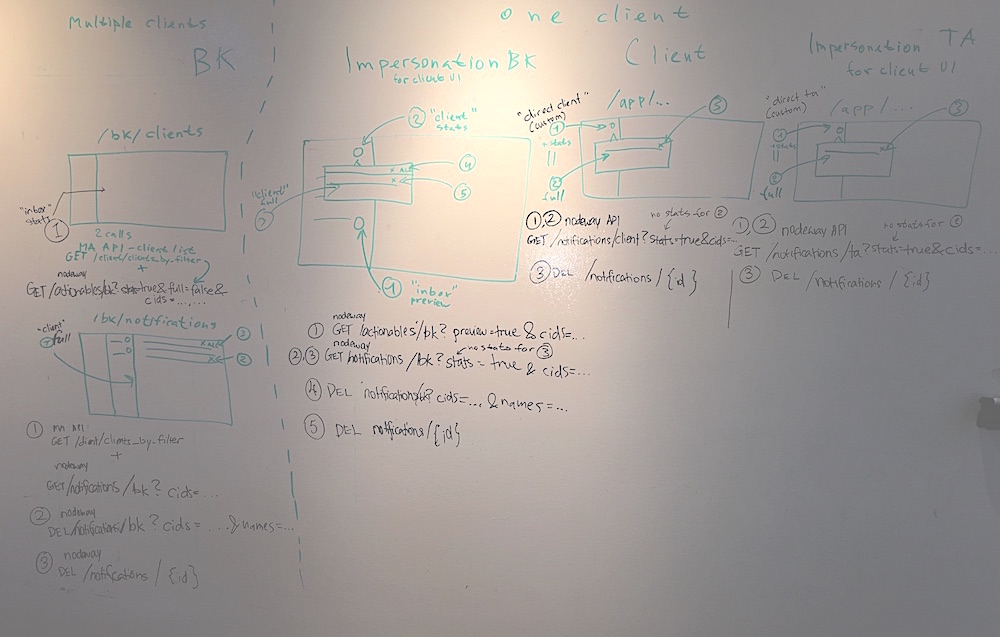 Multiple clients
BK
/bk/clients
"inbox"
stats
1
2 calls
MA API - client list
GET /client/clients_by_filter
+
nodeway
GET /actionables/bk? stats=true & full=false &
cids=...,...
/bk/notifications
"client"
full
x ALL
3
x
2
1 MA API
GET /client/clients_by_filter
+
nodeway
GET /notifications /bk? cids=...
2 nodeway
DEL /notifications/bk? cids= ... & names=...
3 nodeway
DEL /notifications / {id}
one client
Impersonation BK
for client UI
2 "client"
stats
x ALL
4
x
5
"client"
full
3
1 "inbox"
preview
nodeway
1 GET /actionables/bk? preview=true & cids=...
nodeway
no stats for 3
2,3 GET notifications /bk? stats = true & cids=...
4 DEL notifications/bk? cids=... & names=...
5 DEL notifications/{id}
Client
/app/...
"direct client"
(custom)
1
+ stats
3
2
full
1,2 nodeway API
no stats for 2
GET /notifications/client? stats=true&cids=...
3 DEL /notifications / {id}
Impersonation TA
for client UI
/app/...
"direct ta"
(custom)
1
+stats
3
2
full
1 2 nodeway API
no stats for 2
GET /notifications/ta? stats=true&cids=...
3 DEL /notifications / {id}